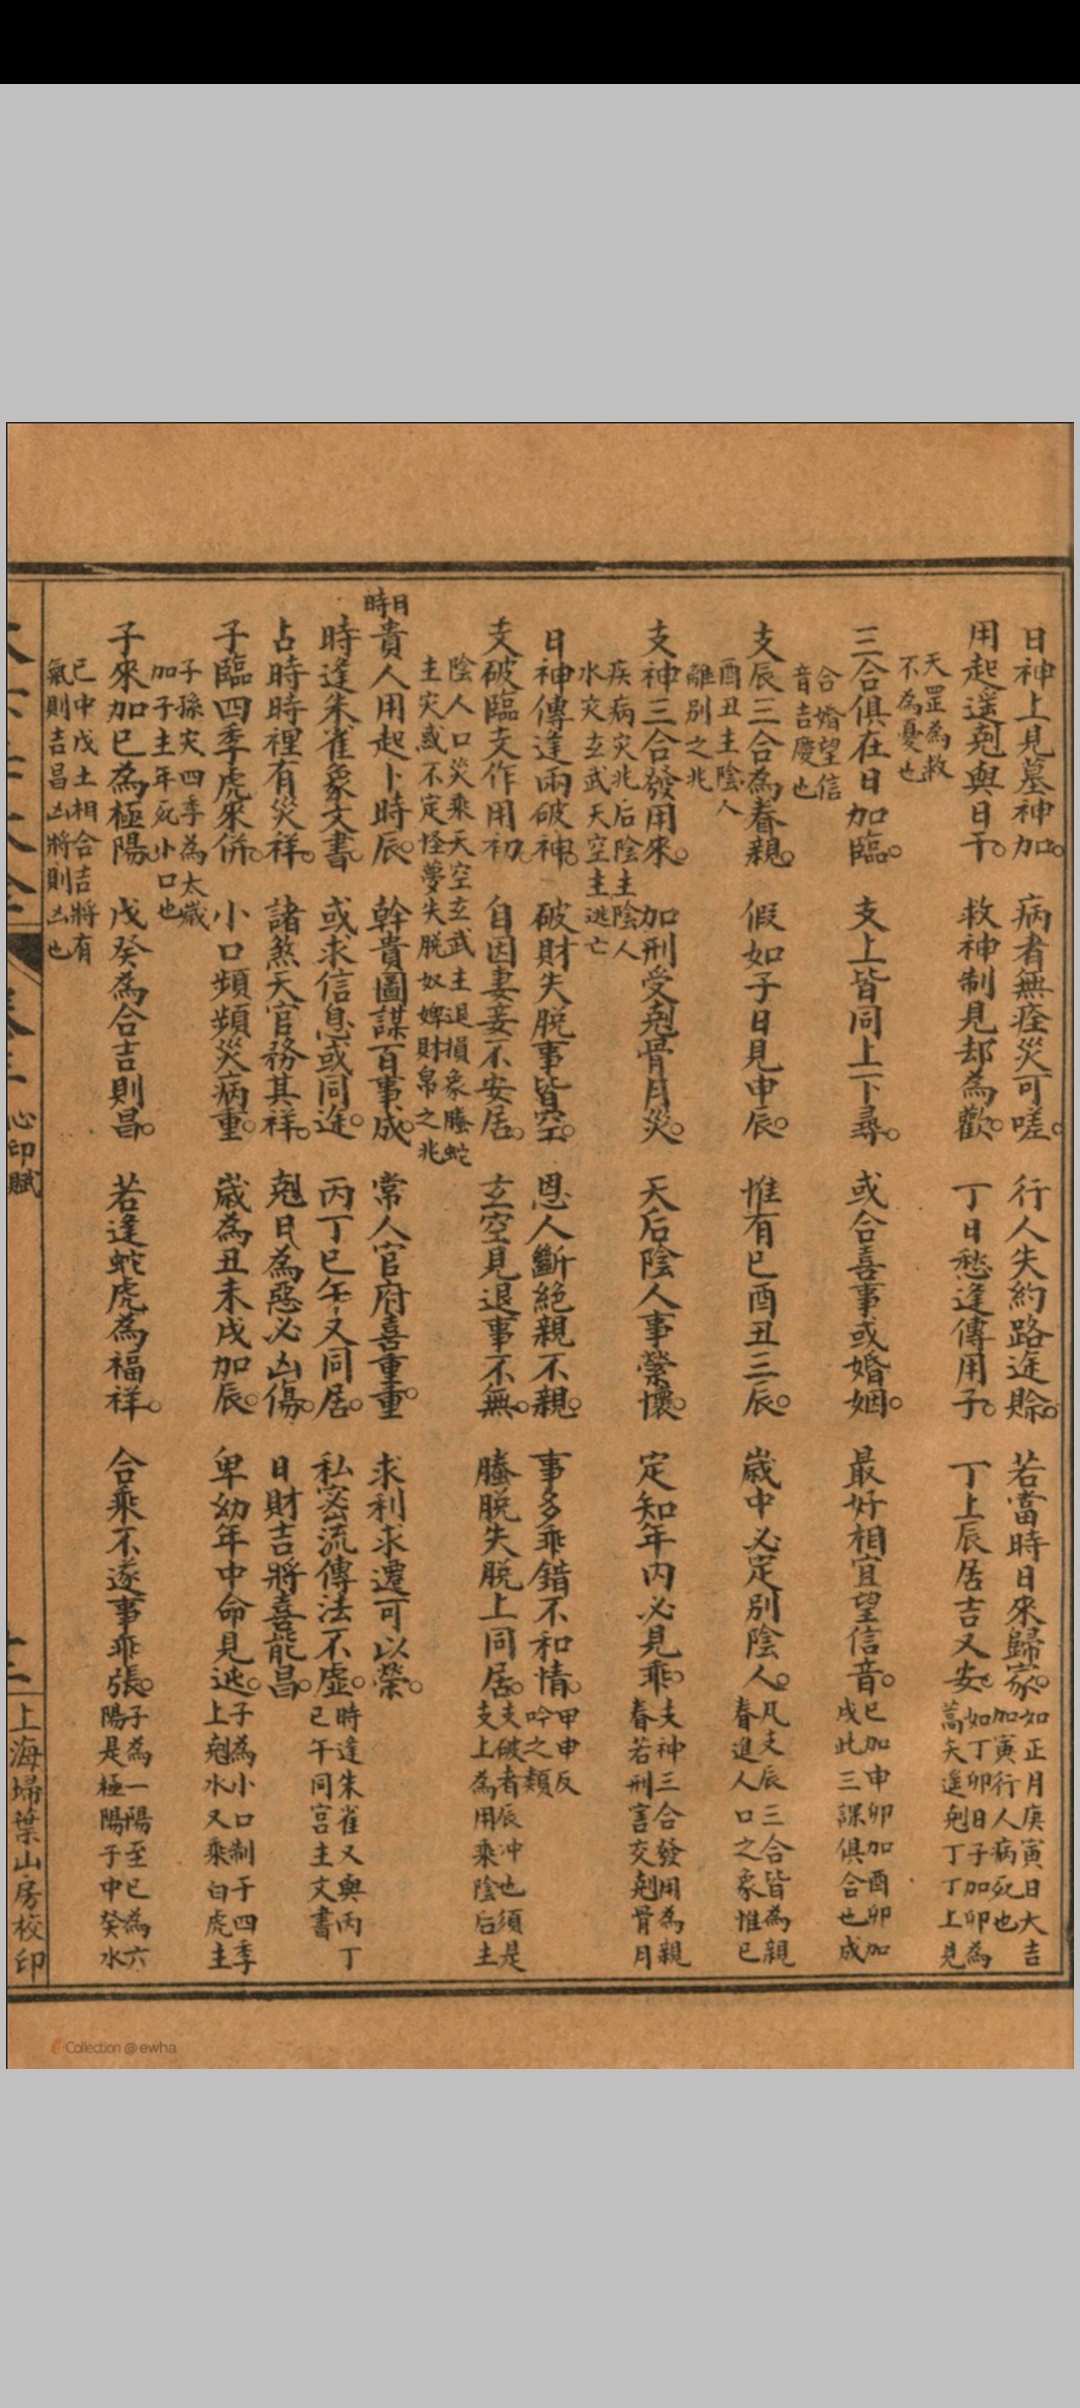 日神上見墓神加。病者無痊災可嗟。行人失約路途賒。若當時日來歸家。如正月庚寅日大吉加寅行人病死也
用起遥剋與日干。救神制見却為歡。丁日愁逢傳用子。丁上辰居吉又安。如丁卯日子加卯為蒿矢遥剋丁丁上見
天罡為救不為憂也
三合俱在日加臨。支上皆同上下尋。或合喜事或婚姻。最好相宜望信音。巳加申卯加酉卯加戌此三課俱合也成
合婚望信音吉慶也
支辰三合為眷親。假如子日見申辰。惟有巳酉丑三辰。歲中必定別陰人。凡支辰三合皆為親眷進人口之象惟巳
酉丑主陰人離別之兆
支神三合發用來。加刑受剋骨月災。天后陰人事縈懷。定知年內必見乖。支神三合發用為親眷若刑害交剋骨月
疾病灾兆后陰主陰人水灾玄武天空主逃亡
日神傳逢兩破神。破財失脱事皆空。恩人斷絕親不親。事多乖錯不和情。甲申反吟之類
支破臨支作用初。自因妻妾不安居。玄空見退事不無。螣脱失脱上同居。支破者辰冲也須是支上為用乘陰后主
陰人口災乘天空玄武主退損象螣蛇主灾惑不定怪夢失脱奴婢財帛之兆
日時
貴人用起卜時辰。幹貴圖謀百事成。常人官府喜重重。求利求遷可以榮。
時逢朱雀象文書。或求信息或同途。丙丁巳午又同居。私密流傳法不虛。時逢朱雀又與丙丁巳午同宮主文書
占時時裡有災祥。諸煞天官務其祥。剋日為惡必凶傷。日財吉將喜能昌。
子臨四季虎來併。小口頻頻災病重。歲為丑未戌加辰。卑幼年中命見逝。子為小口制于四季上剋水又乘白虎主
子孫灾四季為太歲加子主年死小口也
子來加巳為極陽。戊癸為合吉則昌。若逢蛇虎為福祥。合乘不遂事乖張。子為一陽至巳為六陽是極陽子中癸水
巳中戊土相合吉將有氣則吉昌凶將則凶也
心印賦
上海埽葉山房校印
Collection @ ewha